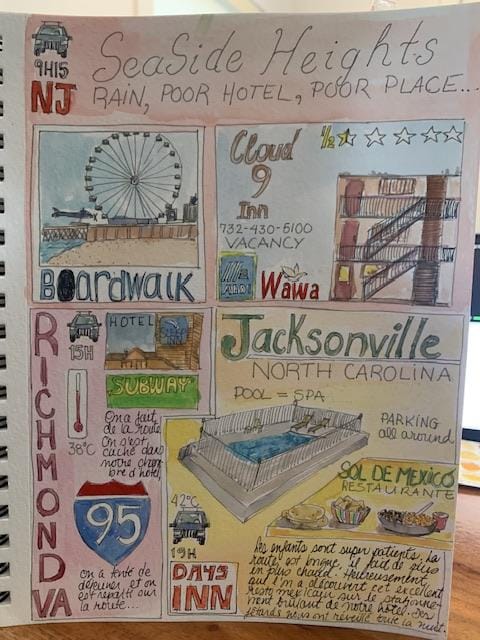 9H15
NJ
SeaSide Heights
RAIN, POOR HOTEL, POOR PLACE...
BOardwalk
Cloud
9
Inn
1/2
732-430-5100
VACANCY
ALDI
Wawa
RICHMOND VA
15H
HOTEL
SUBWAY
38°C
On a fait
de la route.
On s'est
caché dans
notre cham
bre d'hôtel,
95
on a tenté de
déjeuner, et on
est reparti sur
la route...
Jacksonville
NORTH CAROLINA
POOL = SPA
PARKING
all around
SOL DE MEXICO
RESTAURANTE
42°C
19H
DAYS
INN
Les enfants sont super patients. La
route est longue, il fait de plus
en plus chaud. Heureusement,
qu'on a découvert cet excellent
resto mexicain sur le stationne-
ment brûlant de notre hôtel. Des
fêtards nous ont réveillé toute la nuit.